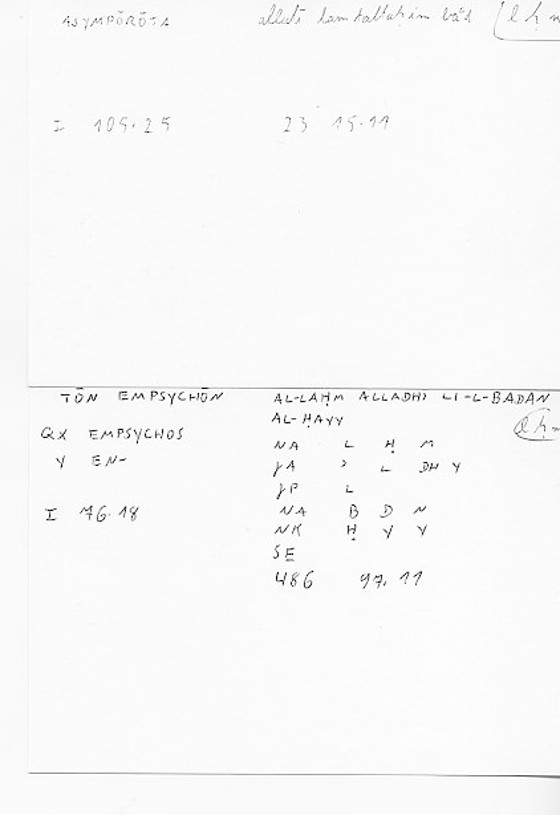 ASYMPŌRŌTA allatī lam taltaḥim ba'd (l ḥ m
I 105.25 23 15.11
TŌN EMPSYCHŌN AL-LAḤM ALLADHĪ LI-L-BADAN
AL-ḤAYY (l ḥ m
QX EMPSYCHOS NA L Ḥ M
Y EN- JA ʾ L DH Y
JP L
I 76.18 NA B D N
NK Ḥ Y Y
SE
486 97,11